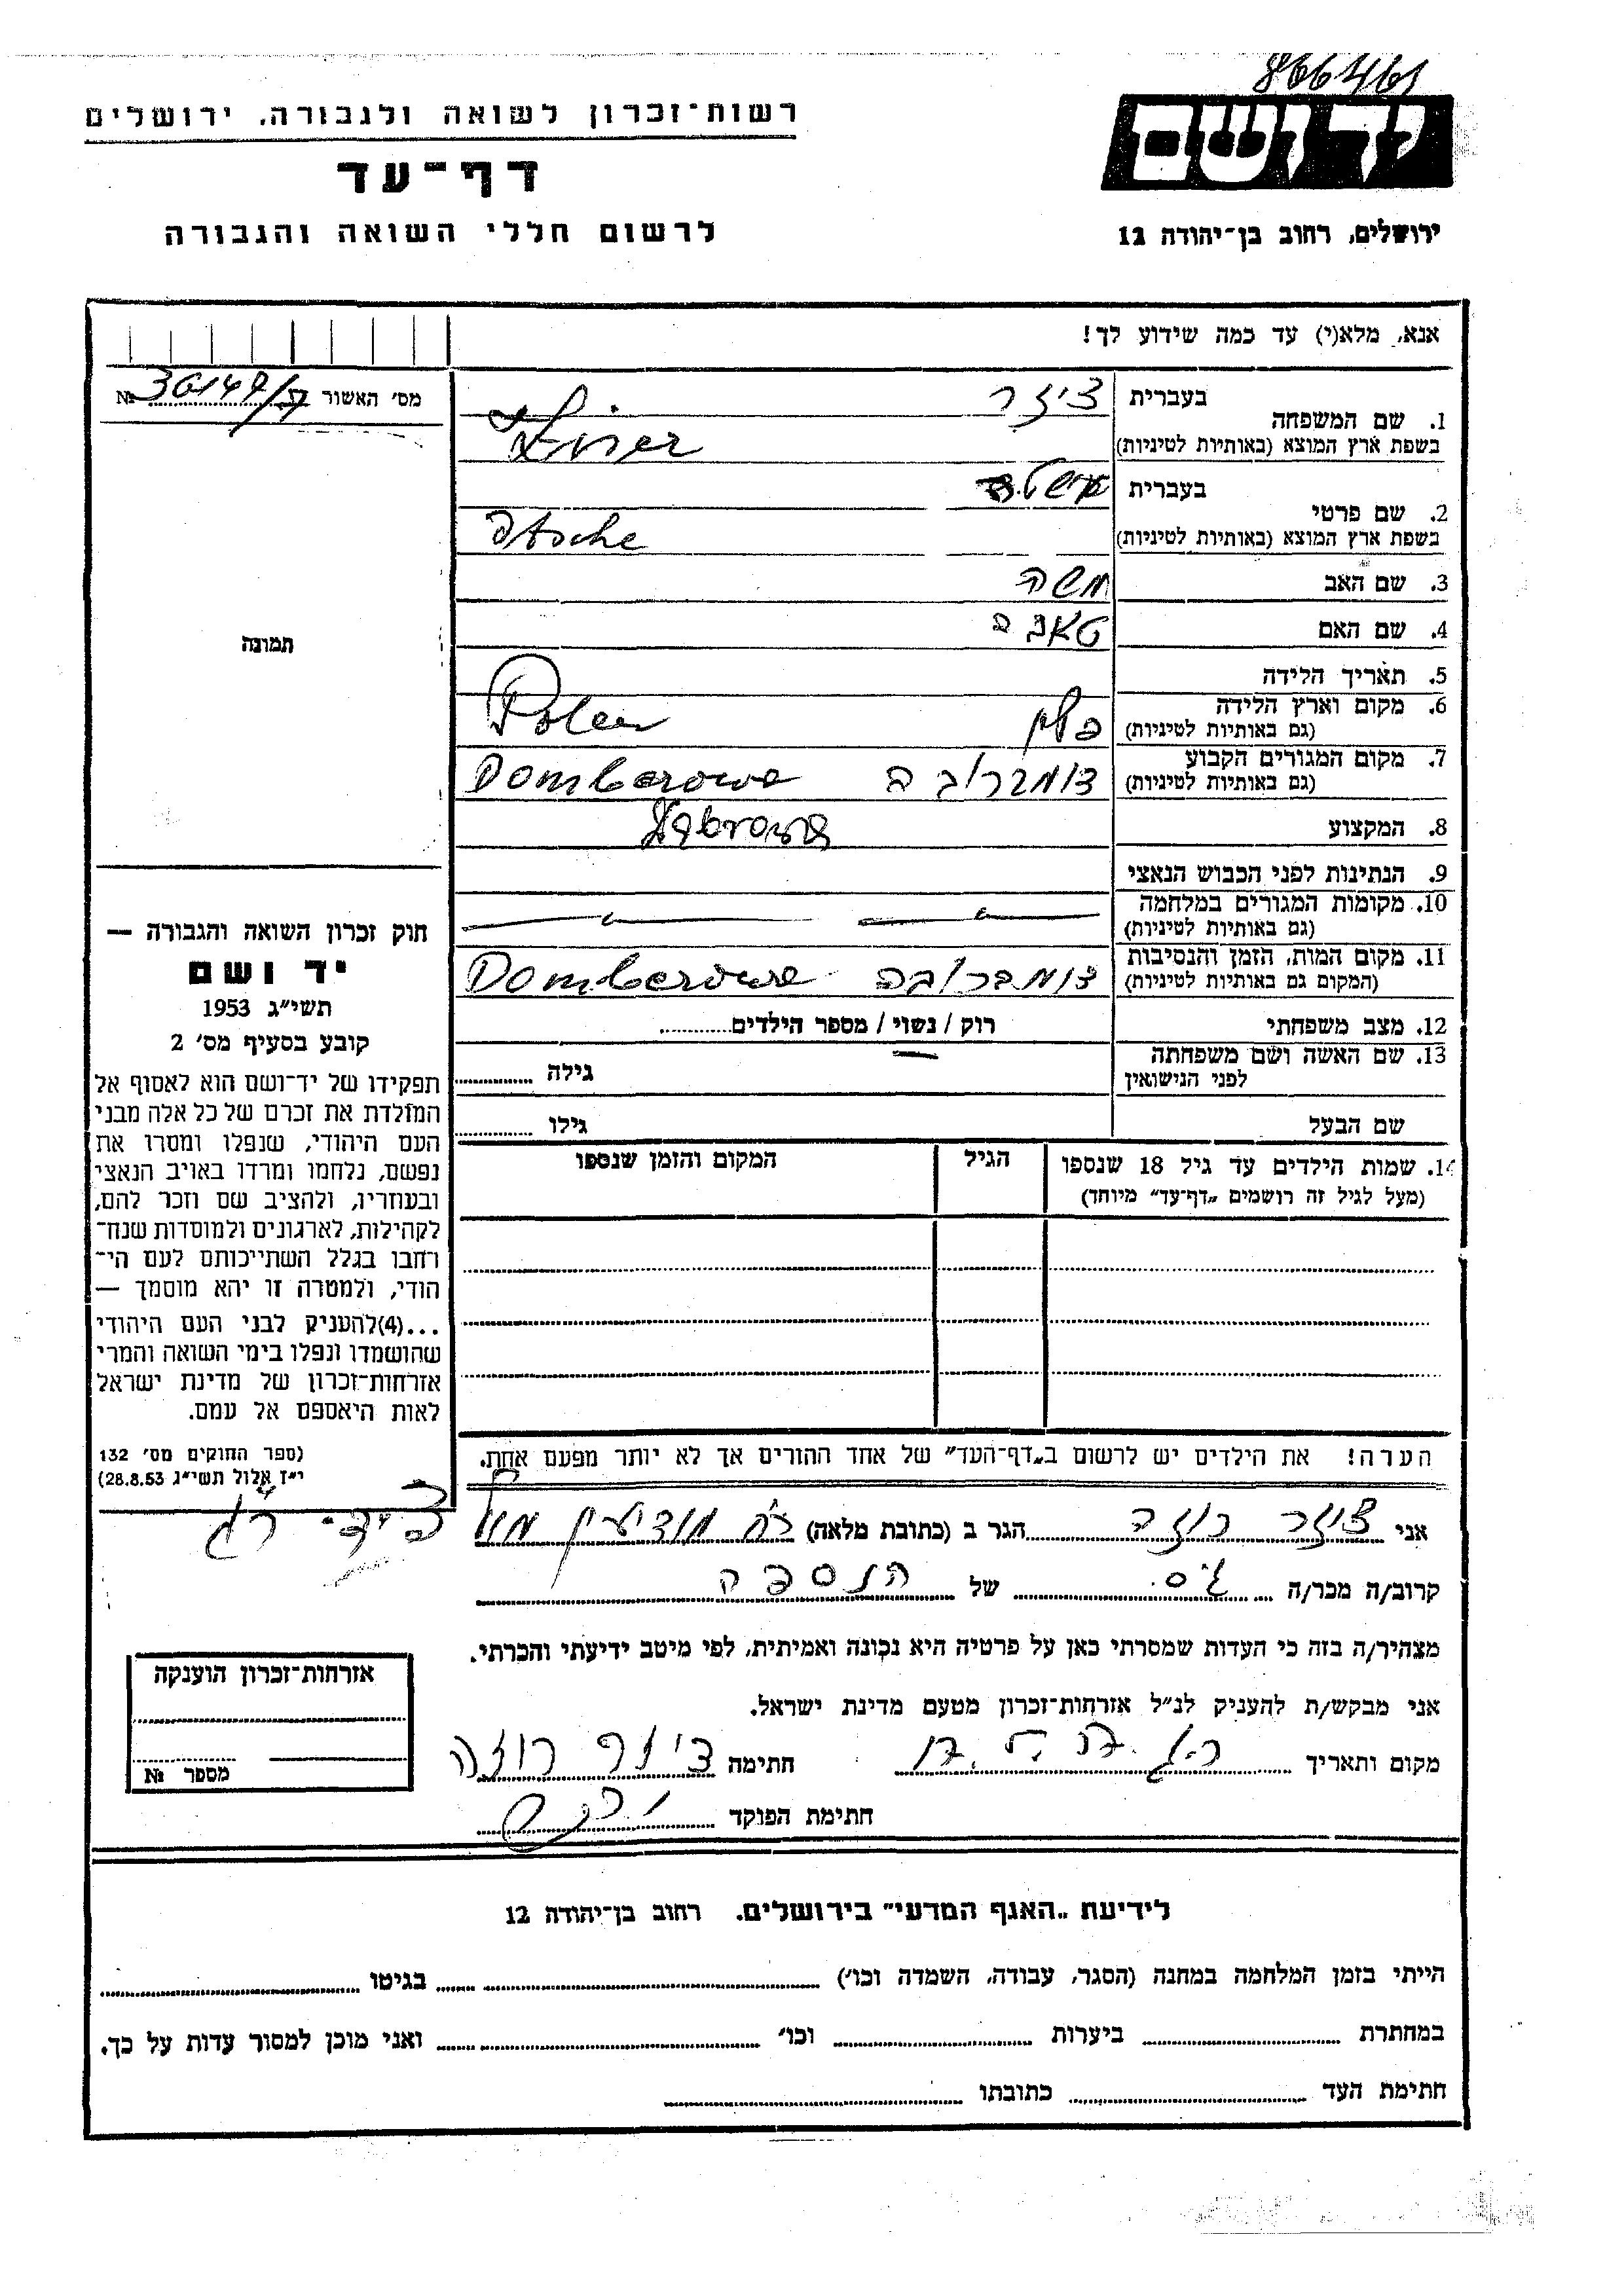 866461
רשות־זכרון לשואה ולגבורה, ירושלים
יד ושם
דף־עד
לרשום חללי השואה והגבורה
ירושלים, רחוב בן־יהודה 12
אנא, מלא(י) עד כמה שידוע לך!
מס' האשור №
1. שם המשפחה בעברית
בשפת ארץ המוצא (באותיות לטיניות)
2. שם פרטי בעברית
בשפת ארץ המוצא (באותיות לטיניות)
3. שם האב משה
4. שם האם
תמונה
5. תאריך הלידה
6. מקום וארץ הלידה פולין Polen
(גם באותיות לטיניות)
7. מקום המגורים הקבוע דומברובה Domberowe
(גם באותיות לטיניות)
8. המקצוע
9. הנתינות לפני הכבוש הנאצי
10. מקומות המגורים במלחמה
(גם באותיות לטיניות)
11. מקום המות, הזמן והנסיבות דומברובה Domberowe
(המקום גם באותיות לטיניות)
12. מצב משפחתי רוק / נשוי / מספר הילדים
13. שם האשה ושם משפחתה
לפני הנישואין גילה
שם הבעל גילו
14. שמות הילדים עד גיל 18 שנספו הגיל המקום והזמן שנספו
(מעל לגיל זה רושמים „דף־עד” מיוחד)
חוק זכרון השואה והגבורה —
יד ושם
תשי״ג 1953
קובע בסעיף מס' 2
תפקידו של יד־ושם הוא לאסוף אל
המולדת את זכרם של כל אלה מבני
העם היהודי, שנפלו ומסרו את
נפשם, נלחמו ומרדו באויב הנאצי
ובעוזריו, ולהציב שם וזכר להם,
לקהילות, לארגונים ולמוסדות שנח־
רחבו בגלל השתייכותם לעם הי־
הודי, ולמטרה זו יהא מוסמך —
...(4)להעניק לבני העם היהודי
שהושמדו ונפלו בימי השואה והמרי
אזרחות־זכרון של מדינת ישראל
לאות היאספם אל עמם.
(ספר החוקים מס' 132
י״ז אלול תשי״ג 28.8.53)
הערה! את הילדים יש לרשום ב„דף־העד” של אחד ההורים אך לא יותר מפעם אחת.
אני הגר ב (כתובת מלאה)
קרוב/ה מכר/ה גיס של הנספה
מצהיר/ה בזה כי העדות שמסרתי כאן על פרטיה היא נכונה ואמיתית, לפי מיטב ידיעתי והכרתי.
אני מבקש/ת להעניק לנ״ל אזרחות־זכרון מטעם מדינת ישראל.
מקום ותאריך חתימה
חתימת הפוקד
אזרחות־זכרון הוענקה
מספר №
לידיעת „האגף המדעי” בירושלים, רחוב בן־יהודה 12
הייתי בזמן המלחמה במחנה (הסגר, עבודה, השמדה וכו') בגיטו
במחתרת ביערות וכו' ואני מוכן למסור עדות על כך.
חתימת העד כתובתו